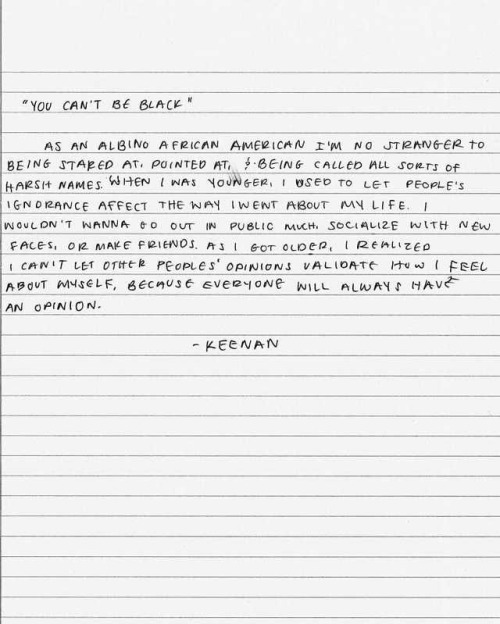 "YOU CAN'T BE BLACK"
AS AN ALBINO AFRICAN AMERICAN I'M NO STRANGER TO
BEING STARED AT, POINTED AT, & BEING CALLED ALL SORTS OF
HARSH NAMES. WHEN I WAS YOUNGER, I USED TO LET PEOPLE'S
IGNORANCE AFFECT THE WAY I WENT ABOUT MY LIFE. I
WOULDN'T WANNA GO OUT IN PUBLIC MUCH, SOCIALIZE WITH NEW
FACES, OR MAKE FRIENDS. AS I GOT OLDER, I REALIZED
I CAN'T LET OTHER PEOPLES' OPINIONS VALIDATE HOW I FEEL
ABOUT MYSELF, BECAUSE EVERYONE WILL ALWAYS HAVE
AN OPINION.
- KEENAN